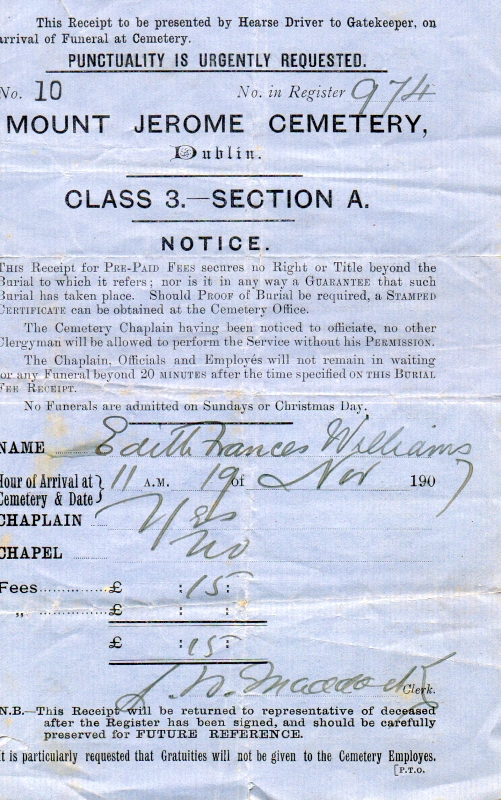 This Receipt to be presented by Hearse Driver to Gatekeeper, on
arrival of Funeral at Cemetery.
PUNCTUALITY IS URGENTLY REQUESTED.
No. 10 No. in Register 974
MOUNT JEROME CEMETERY,
Dublin.
CLASS 3.—SECTION A.
NOTICE.
THIS Receipt for PRE-PAID FEES secures no Right or Title beyond the
Burial to which it refers; nor is it in any way a GUARANTEE that such
Burial has taken place. Should PROOF of Burial be required, a STAMPED
CERTIFICATE can be obtained at the Cemetery Office.
The Cemetery Chaplain having been noticed to officiate, no other
Clergyman will be allowed to perform the Service without his PERMISSION.
The Chaplain, Officials and Employés will not remain in waiting
for any Funeral beyond 20 MINUTES after the time specified ON THIS BURIAL
FEE RECEIPT.
No Funerals are admitted on Sundays or Christmas Day.
NAME Edith Frances Williams
Hour of Arrival at } 11 A.M. 19 of Nov 1907
Cemetery & Date }
CHAPLAIN Yes
CHAPEL No
Fees £ : 15 :
„ £ : :
£ : 15 :
J. N. Maddock Clerk.
N.B.—This Receipt will be returned to representative of deceased
after the Register has been signed, and should be carefully
preserved for FUTURE REFERENCE.
It is particularly requested that Gratuities will not be given to the Cemetery Employes.
[P.T.O.